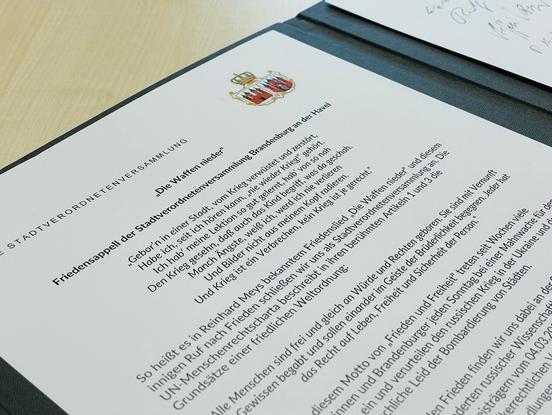 E STADTVERORDNETENVERSAMMLUNG
„Die Waffen nieder“
Friedensappell der Stadtverordnetenversammlung Brandenburg an der Havel
„Gebor'n in einer Stadt, vom Krieg verwüstet und zerstört,
Habe ich, seit ich hören kann, „nie wieder Krieg!“ gehört.
Ich hab' meine Lektion so gut gelernt, hab' von so nah
Den Krieg geseh'n, daß auch das Kind begriff, was da geschah.
Manch Ängste, weiß ich, werd ich nie verlieren
Und Bilder nicht aus meinem Kopf radieren.
Und Krieg ist ein Verbrechen, kein Krieg ist je gerecht.“
So heißt es in Reinhard Meys bekanntem Friedenslied „Die Waffen nieder“ und diesem
innigen Ruf nach Frieden schließen wir uns als Stadtverordnetenversammlung an. Die
UN-Menschenrechtscharta beschreibt in ihren berühmten Artikeln 1 und 3 die
Grundsätze einer friedlichen Weltordnung:
Alle Menschen sind frei und gleich an Würde und Rechten geboren. Sie sind mit Vernunft
Gewissen begabt und sollen einander im Geiste der Brüderlichkeit begegnen. Jeder hat
das Recht auf Leben, Freiheit und Sicherheit der Person.“
diesem Motto von „Frieden und Freiheit“ treten seit Wochen viele
und Brandenburger jeden Sonntag bei einer Mahnwache für de
en ein und verurteilen den russischen Krieg in der Ukraine und
chliche Leid der Bombardierung von Städten.
en Frieden finden wir uns dabei an der
arten russischer Wissenschaf
strägern vom 04.03.2
errechtlichen